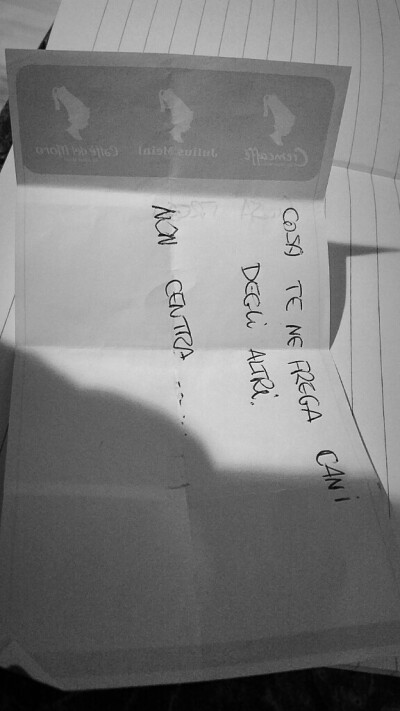 Cremcaffè
Julius Meinl
Caffè del Moro
COSA TE NE FREGA CANI
DEGLI ALTRI.
NON CENTRA .....